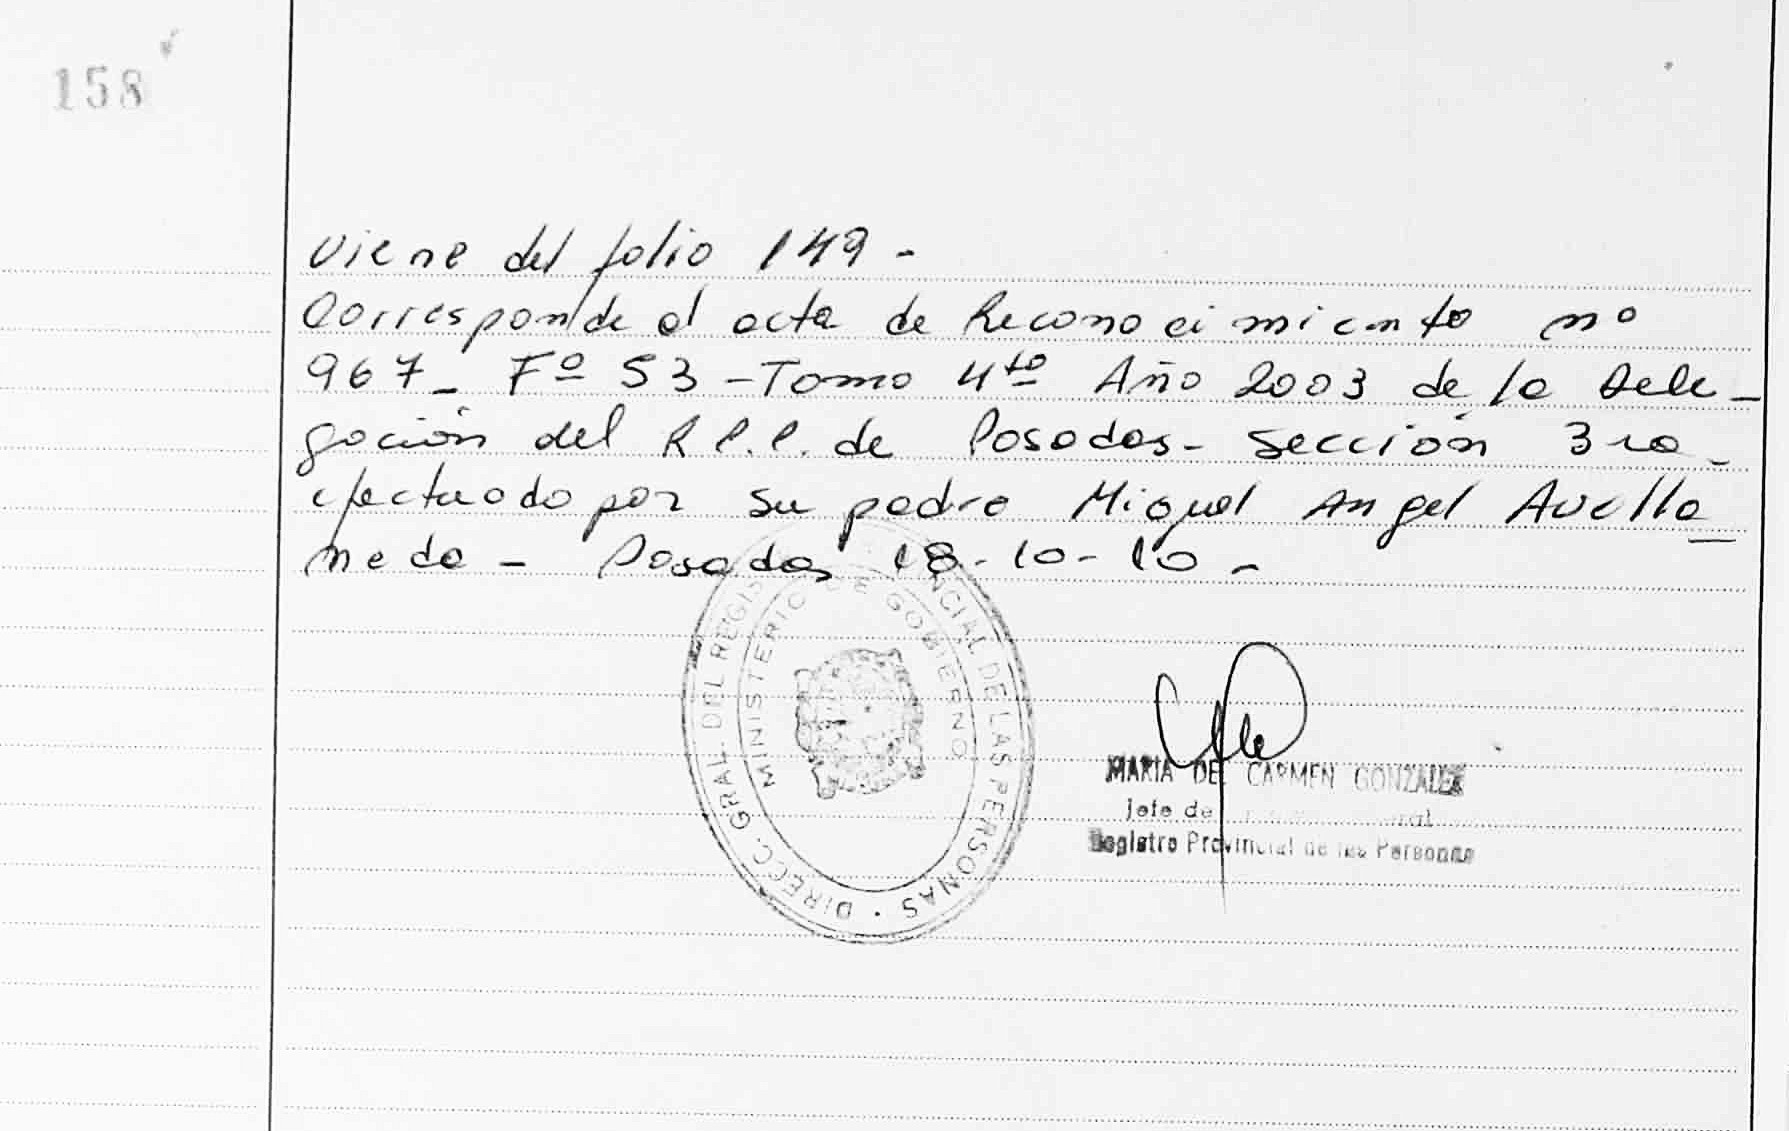 158
Viene del folio 149 -
Corresponde al acta de Reconocimiento nº
967_ Fº 53 - Tomo 4to Año 2003 de la Dele_
gación del R.P.P. de Posadas - Sección 3ra_
efectuado por su padre Miguel Angel Avella_
neda - Posadas 18-10-10 -
DIRECC. GRAL DEL REGIS
NCIAL DE LAS PERSONAS
MINISTERIO DE GOBIERNO
MARIA DEL CARMEN GONZALEZ
Jefe de
Registro Provincial de las Personas